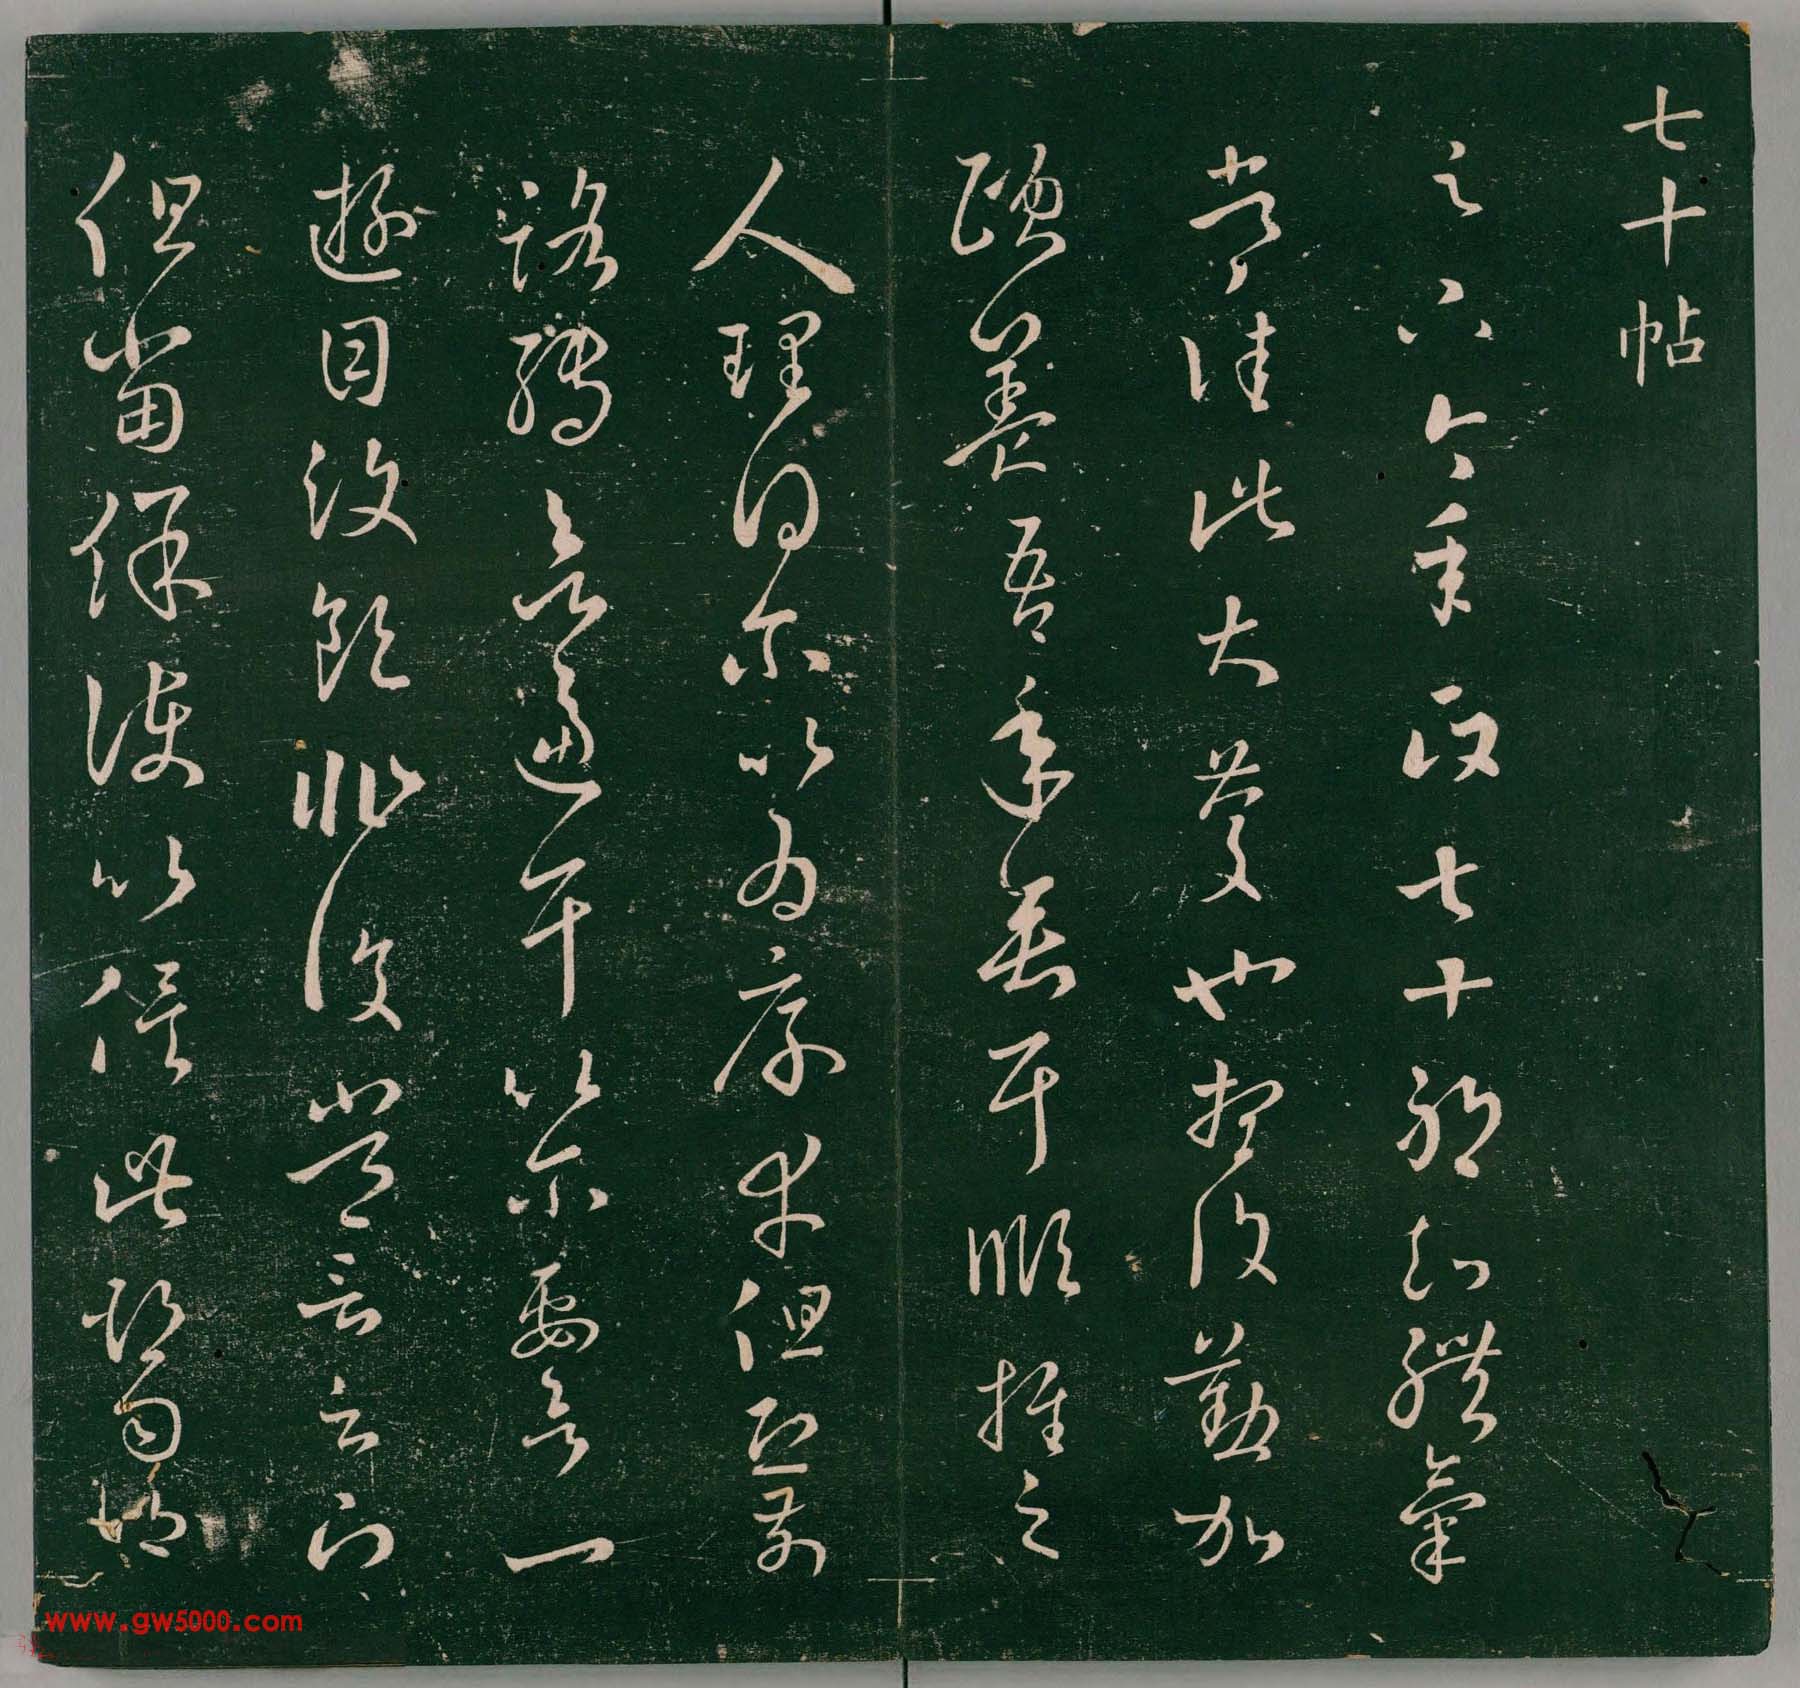 七十帖
足下今年政七十耶知體氣
常佳此大慶也想復勤加
頤養吾年垂耳順推之
人理得爾以為厚幸但恐前
路轉欲逼耳以爾要欲一
遊目汶領非復常言足下
但當保護以俟此期勿謂
www.gw5000.com